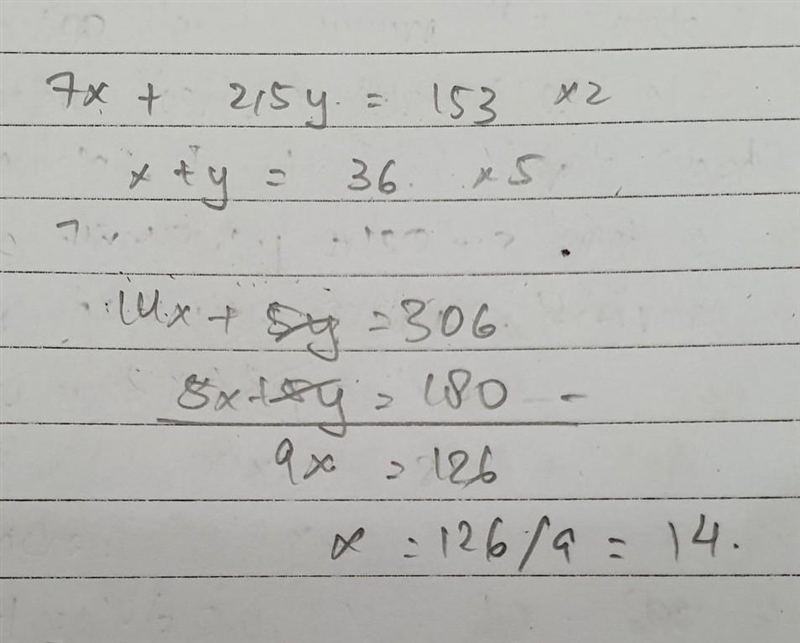 7x + 2,5y = 153 ×2
x + y = 36 ×5
14x + 5y = 306
5x + 5y = 180 -
9x = 126
x = 126/9 = 14.